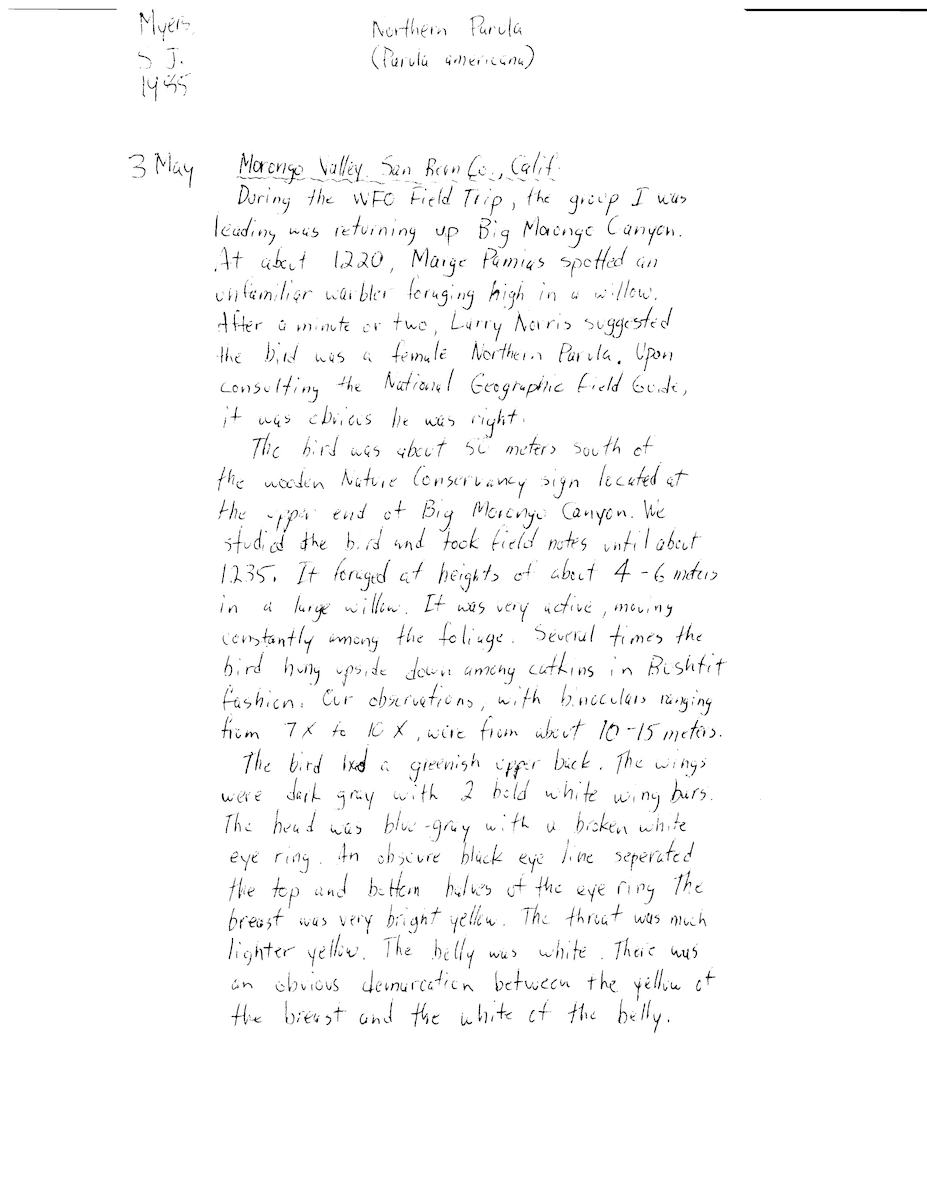 Myers,
S J.
1985
Northern Parula
(Parula americana)
3 May Morongo Valley San Bern Co., Calif.
During the WFO Field Trip, the group I was
leading was returning up Big Morongo Canyon.
At about 1220, Marge Pamias spotted an
unfamiliar warbler foraging high in a willow.
After a minute or two, Larry Norris suggested
the bird was a female Northern Parula. Upon
consulting the National Geographic Field Guide,
it was obvious he was right.
The bird was about 50 meters south of
the wooden Nature Conservancy sign located at
the upper end of Big Morongo Canyon. We
studied the bird and took field notes until about
1235. It foraged at heights of about 4-6 meters
in a large willow. It was very active, moving
constantly among the foliage. Several times the
bird hung upside down among catkins in Bushtit
fashion. Our observations, with binoculars ranging
from 7X to 10X, were from about 10-15 meters.
The bird had a greenish upper back. The wings
were dark gray with 2 bold white wing bars.
The head was blue-gray with a broken white
eye ring. An obscure black eye line seperated
the top and bottom halves of the eye ring The
breast was very bright yellow. The throat was much
lighter yellow. The belly was white. There was
an obvious demarcation between the yellow of
the breast and the white of the belly.